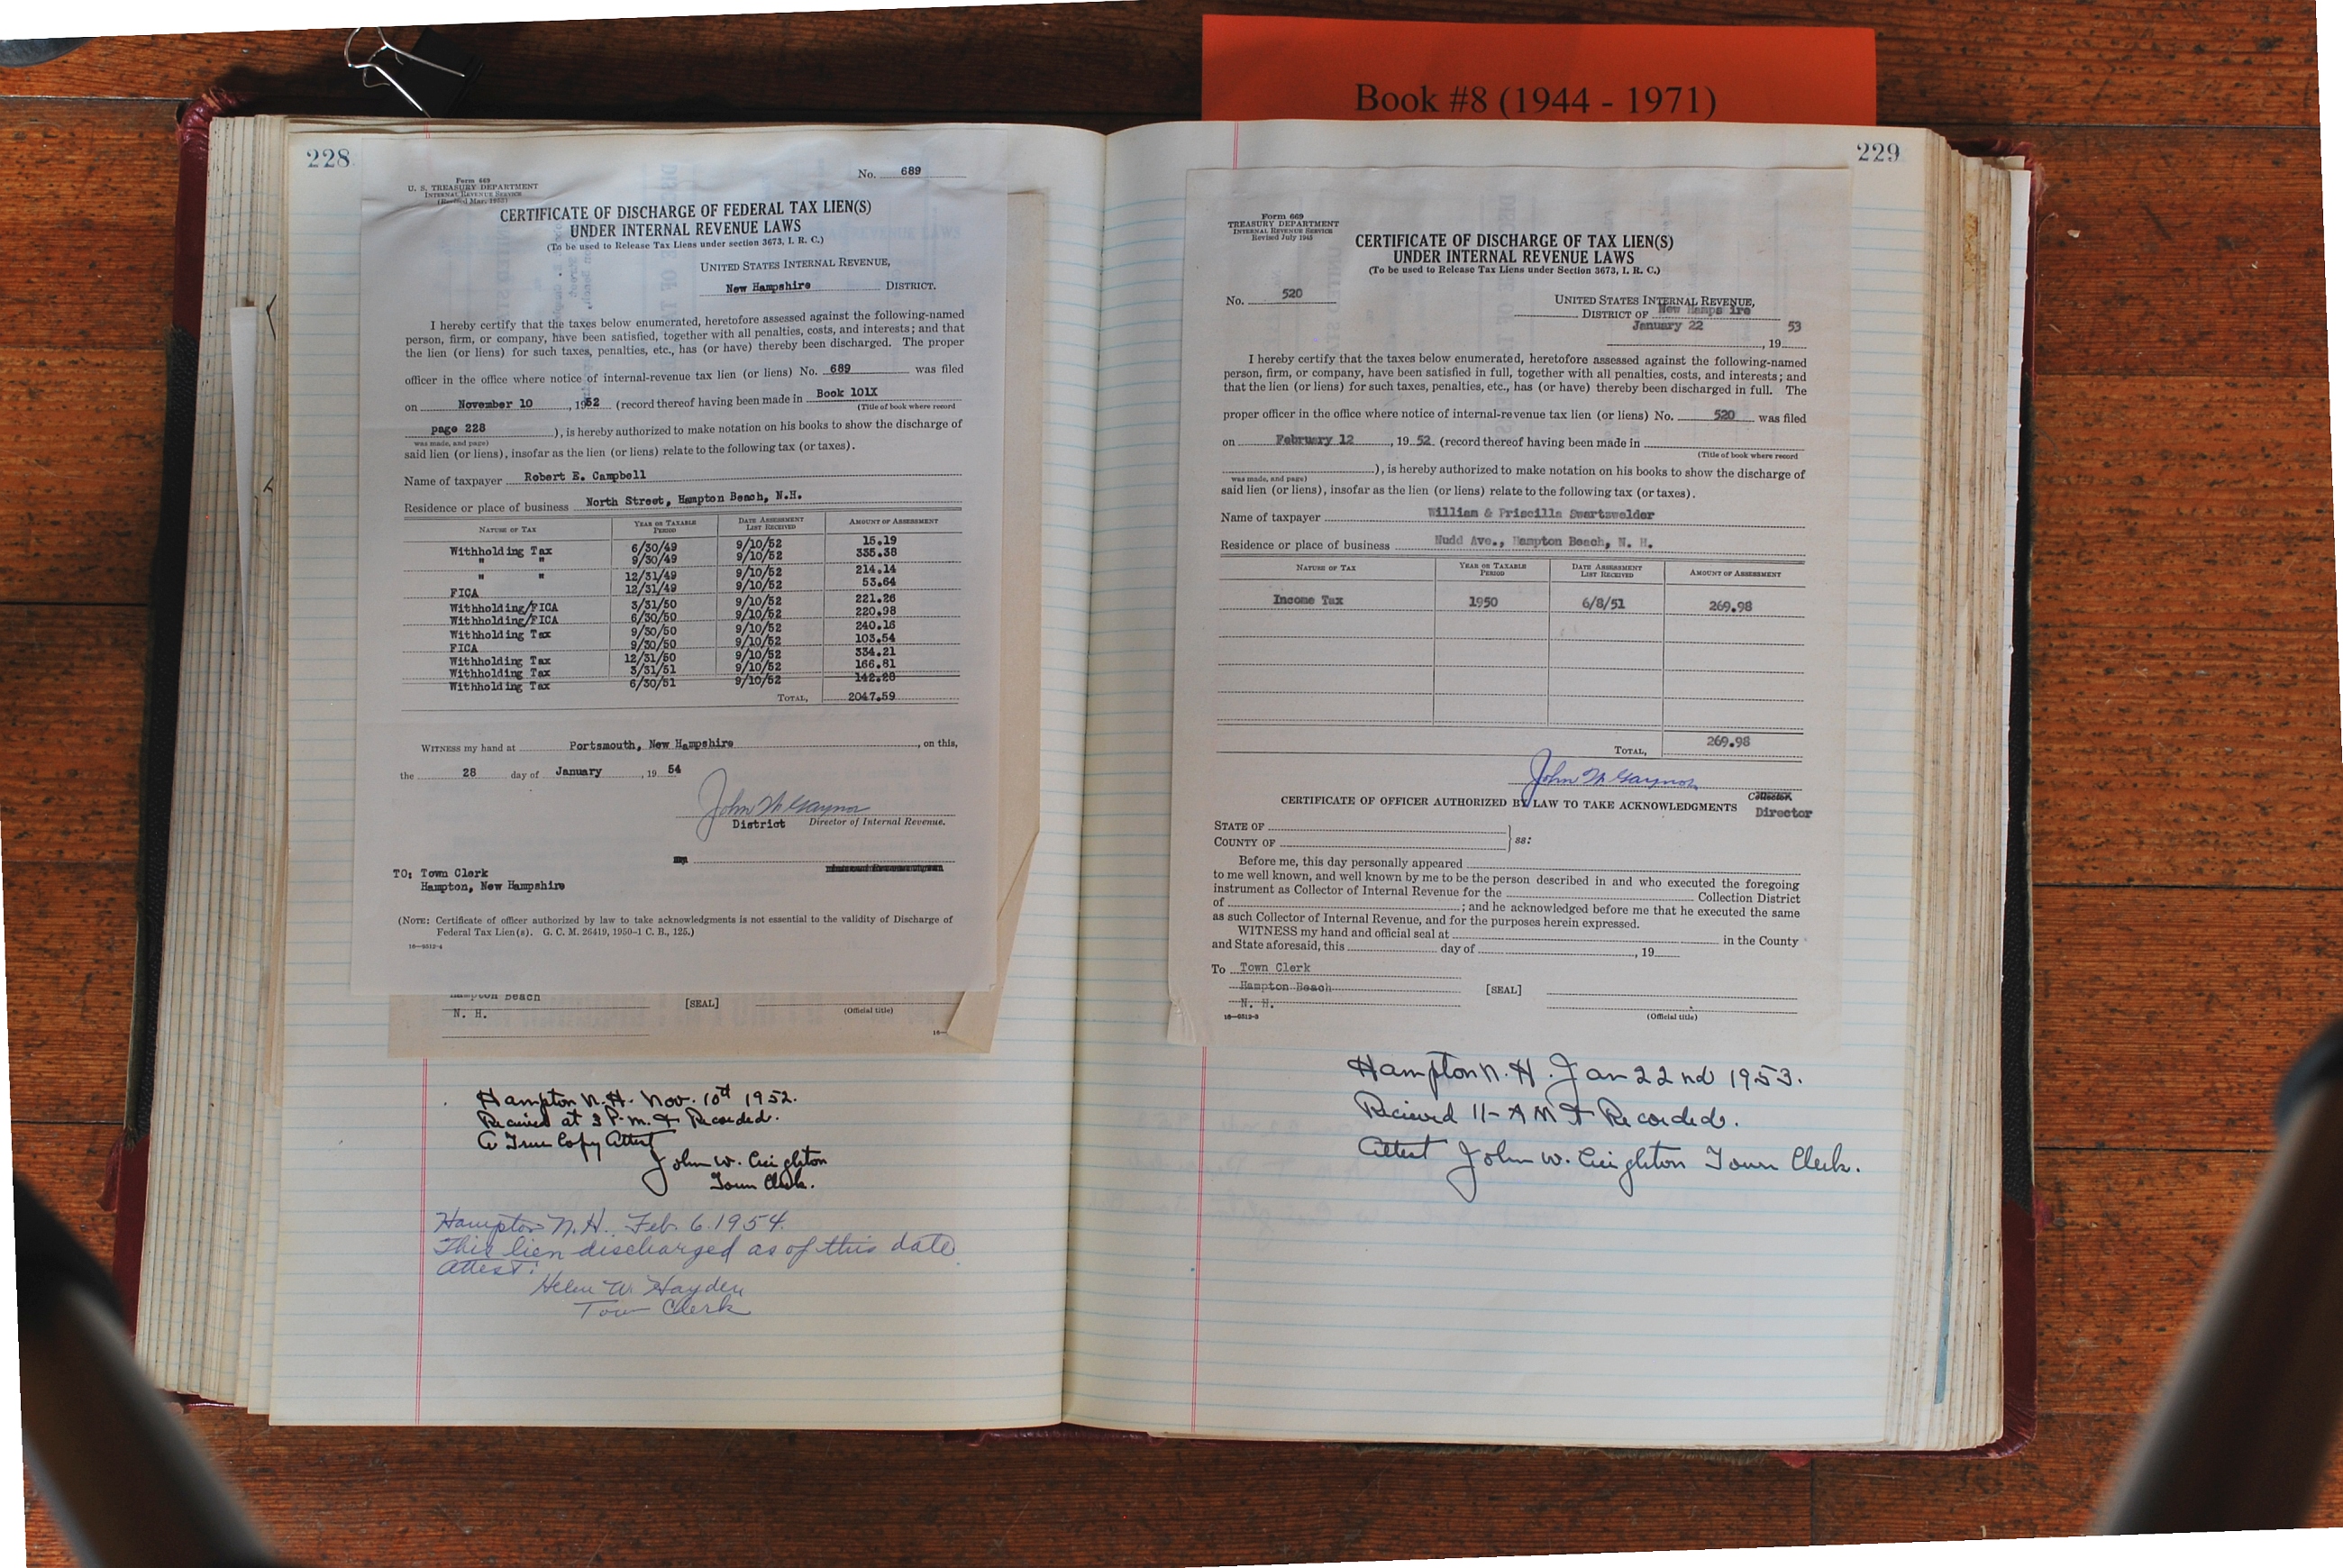 Book #8 (1944 - 1971)
228
Form 669
U. S. TREASURY DEPARTMENT
INTERNAL REVENUE SERVICE
(Revised Mar. 1952)
No. 689
CERTIFICATE OF DISCHARGE OF FEDERAL TAX LIEN(S)
UNDER INTERNAL REVENUE LAWS
(To be used to Release Tax Liens under section 3673, I. R. C.)
UNITED STATES INTERNAL REVENUE,
New Hampshire DISTRICT.
I hereby certify that the taxes below enumerated, heretofore assessed against the following-named
person, firm, or company, have been satisfied, together with all penalties, costs, and interests; and that
the lien (or liens) for such taxes, penalties, etc., has (or have) thereby been discharged. The proper
officer in the office where notice of internal-revenue tax lien (or liens) No. 689 was filed
on November 10, 1952 (record thereof having been made in Book 101X
(Title of book where record
page 228 ), is hereby authorized to make notation on his books to show the discharge of
was made, and page)
said lien (or liens), insofar as the lien (or liens) relate to the following tax (or taxes).
Name of taxpayer Robert E. Campbell
Residence or place of business North Street, Hampton Beach, N.H.
NATURE OF TAX YEAR OR TAXABLE PERIOD DATE ASSESSMENT LIST RECEIVED AMOUNT OF ASSESSMENT
Withholding Tax 6/30/49 9/10/52 15.19
" " 9/30/49 9/10/52 335.38
" " 12/31/49 9/10/52 214.14
FICA 12/31/49 9/10/52 53.64
Withholding/FICA 3/31/50 9/10/52 221.26
Withholding/FICA 6/30/50 9/10/52 220.98
Withholding Tax 9/30/50 9/10/52 240.16
FICA 9/30/50 9/10/52 103.54
Withholding Tax 12/31/50 9/10/52 334.21
Withholding Tax 3/31/51 9/10/52 166.81
Withholding Tax 6/30/51 9/10/52 142.28
TOTAL, 2047.59
WITNESS my hand at Portsmouth, New Hampshire, on this,
the 28 day of January, 19 54
John M Gaynor
District Director of Internal Revenue.
TO: Town Clerk
Hampton, New Hampshire
(NOTE: Certificate of officer authorized by law to take acknowledgments is not essential to the validity of Discharge of
Federal Tax Lien(s). G. C. M. 26419, 1950-1 C. B., 125.)
16—9512-4
Hampton Beach
N. H.
[SEAL]
(Official title)
16—
Hampton N.H. Nov. 10th 1952.
Recieved at 3 P.M. & Recorded.
A True Copy Attest
John W. Creighton
Town Clerk.
Hampton N.H. Feb. 6. 1954.
This lien discharged as of this date
Attest:
Helen W. Hayden
Town Clerk
229
Form 669
TREASURY DEPARTMENT
INTERNAL REVENUE SERVICE
Revised July 1945
CERTIFICATE OF DISCHARGE OF TAX LIEN(S)
UNDER INTERNAL REVENUE LAWS
(To be used to Release Tax Liens under Section 3673, I. R. C.)
No. 520
UNITED STATES INTERNAL REVENUE,
DISTRICT OF New Hamps ire
January 22, 19 53
I hereby certify that the taxes below enumerated, heretofore assessed against the following-named
person, firm, or company, have been satisfied in full, together with all penalties, costs, and interests; and
that the lien (or liens) for such taxes, penalties, etc., has (or have) thereby been discharged in full. The
proper officer in the office where notice of internal-revenue tax lien (or liens) No. 520 was filed
on February 12, 19 52 (record thereof having been made in
(Title of book where record
), is hereby authorized to make notation on his books to show the discharge of
was made, and page)
said lien (or liens), insofar as the lien (or liens) relate to the following tax (or taxes).
Name of taxpayer William & Priscilla Swartswelder
Residence or place of business Nudd Ave., Hampton Beach, N. H.
NATURE OF TAX YEAR OR TAXABLE PERIOD DATE ASSESSMENT LIST RECEIVED AMOUNT OF ASSESSMENT
Income Tax 1950 6/8/51 269.98
TOTAL, 269.98
John M Gaynor
Collector.
CERTIFICATE OF OFFICER AUTHORIZED BY LAW TO TAKE ACKNOWLEDGMENTS
Director
STATE OF
COUNTY OF ss:
Before me, this day personally appeared
to me well known, and well known by me to be the person described in and who executed the foregoing
instrument as Collector of Internal Revenue for the Collection District
of ; and he acknowledged before me that he executed the same
as such Collector of Internal Revenue, and for the purposes herein expressed.
WITNESS my hand and official seal at in the County
and State aforesaid, this day of , 19
To Town Clerk
Hampton Beach
N. H.
[SEAL]
(Official title)
16—9512-3
Hampton N. H. Jan 22nd 1953.
Recieved 11- AM & Recorded.
Attest John W. Creighton Town Clerk.